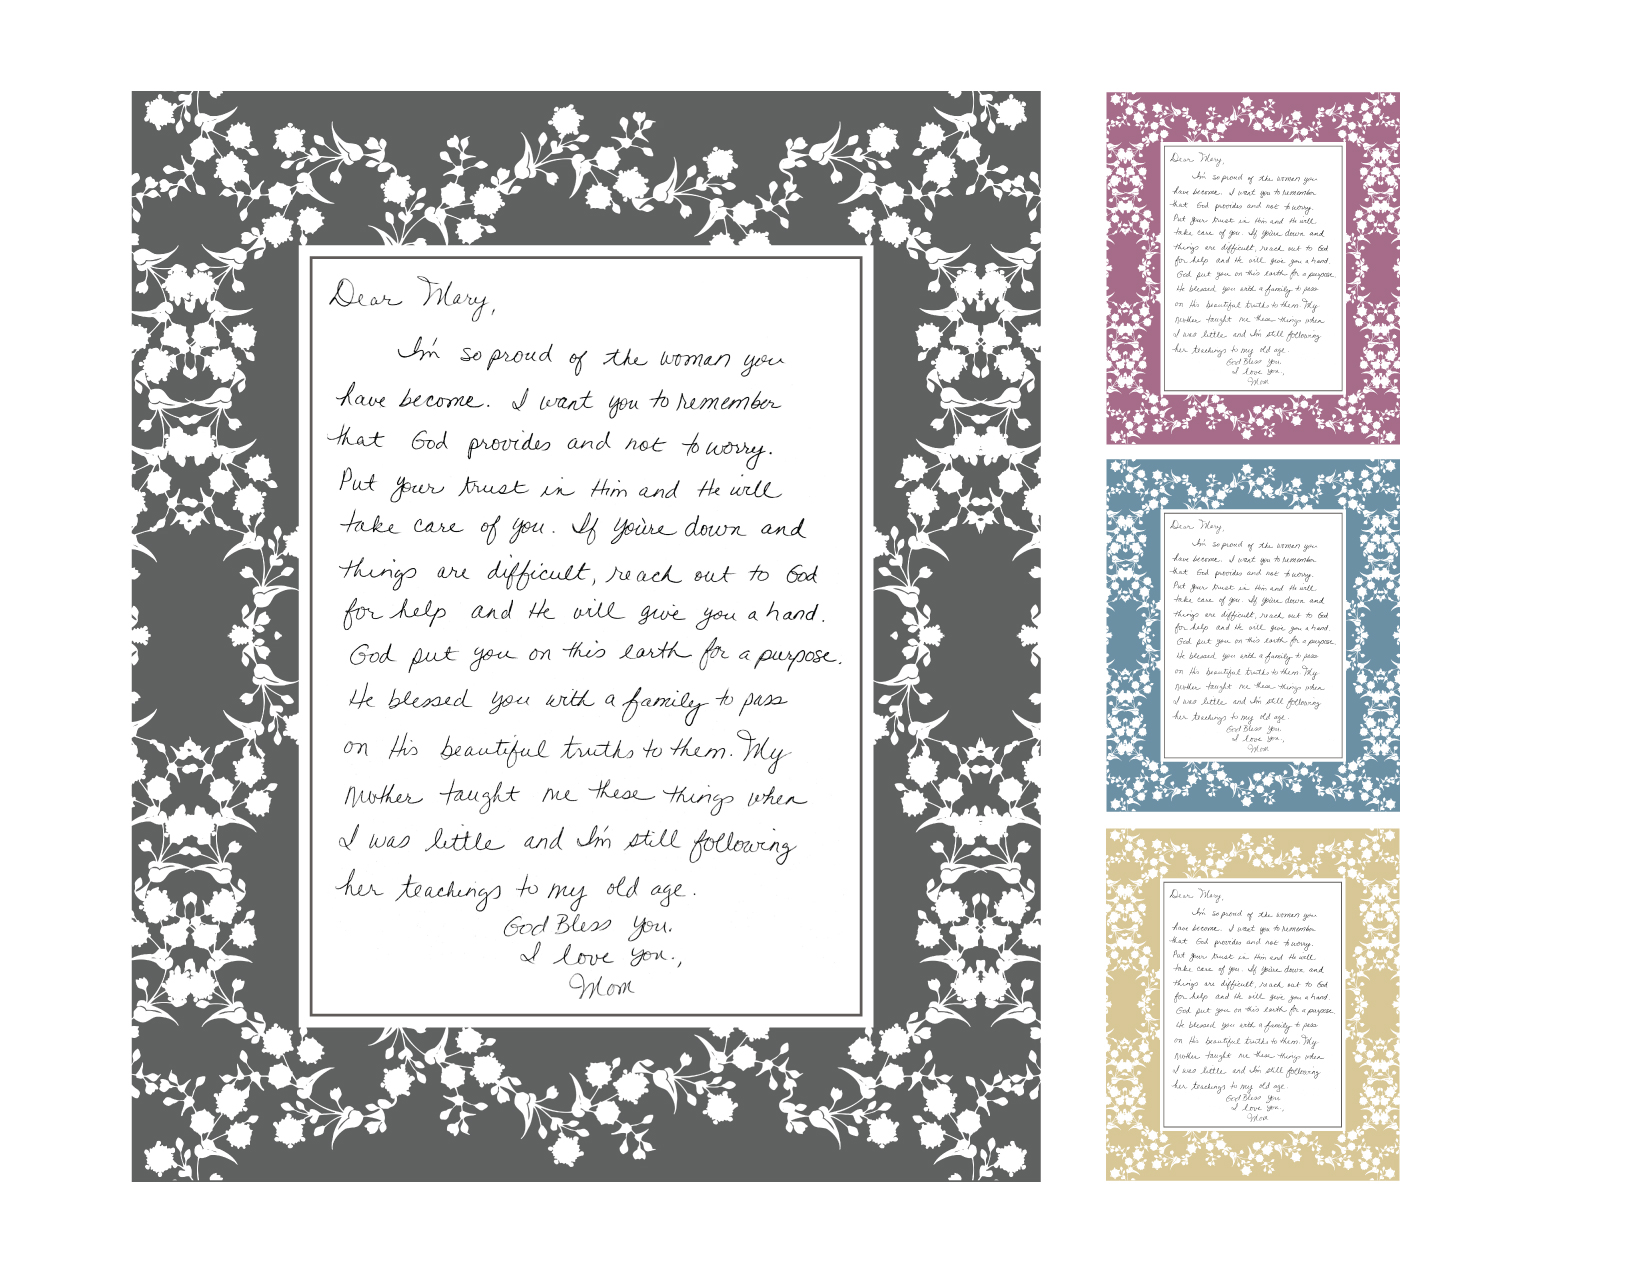 Dear Mary,
I'm so proud of the woman you
have become. I want you to remember
that God provides and not to worry.
Put your trust in Him and He will
take care of you. If you're down and
things are difficult, reach out to God
for help and He will give you a hand.
God put you on this earth for a purpose.
He blessed you with a family to pass
on His beautiful truths to them. My
Mother taught me these things when
I was little and I'm still following
her teachings to my old age.
God Bless You.
I love you.,
Mom
Dear Mary,
I'm so proud of the woman you
have become. I want you to remember
that God provides and not to worry.
Put your trust in Him and He will
take care of you. If you're down and
things are difficult, reach out to God
for help and He will give you a hand.
God put you on this earth for a purpose.
He blessed you with a family to pass
on His beautiful truths to them. My
Mother taught me these things when
I was little and I'm still following
her teachings to my old age.
God Bless You.
I love you.,
Mom
Dear Mary,
I'm so proud of the woman you
have become. I want you to remember
that God provides and not to worry.
Put your trust in Him and He will
take care of you. If you're down and
things are difficult, reach out to God
for help and He will give you a hand.
God put you on this earth for a purpose.
He blessed you with a family to pass
on His beautiful truths to them. My
Mother taught me these things when
I was little and I'm still following
her teachings to my old age.
God Bless You.
I love you.,
Mom
Dear Mary,
I'm so proud of the woman you
have become. I want you to remember
that God provides and not to worry.
Put your trust in Him and He will
take care of you. If you're down and
things are difficult, reach out to God
for help and He will give you a hand.
God put you on this earth for a purpose.
He blessed you with a family to pass
on His beautiful truths to them. My
Mother taught me these things when
I was little and I'm still following
her teachings to my old age.
God Bless You.
I love you.,
Mom